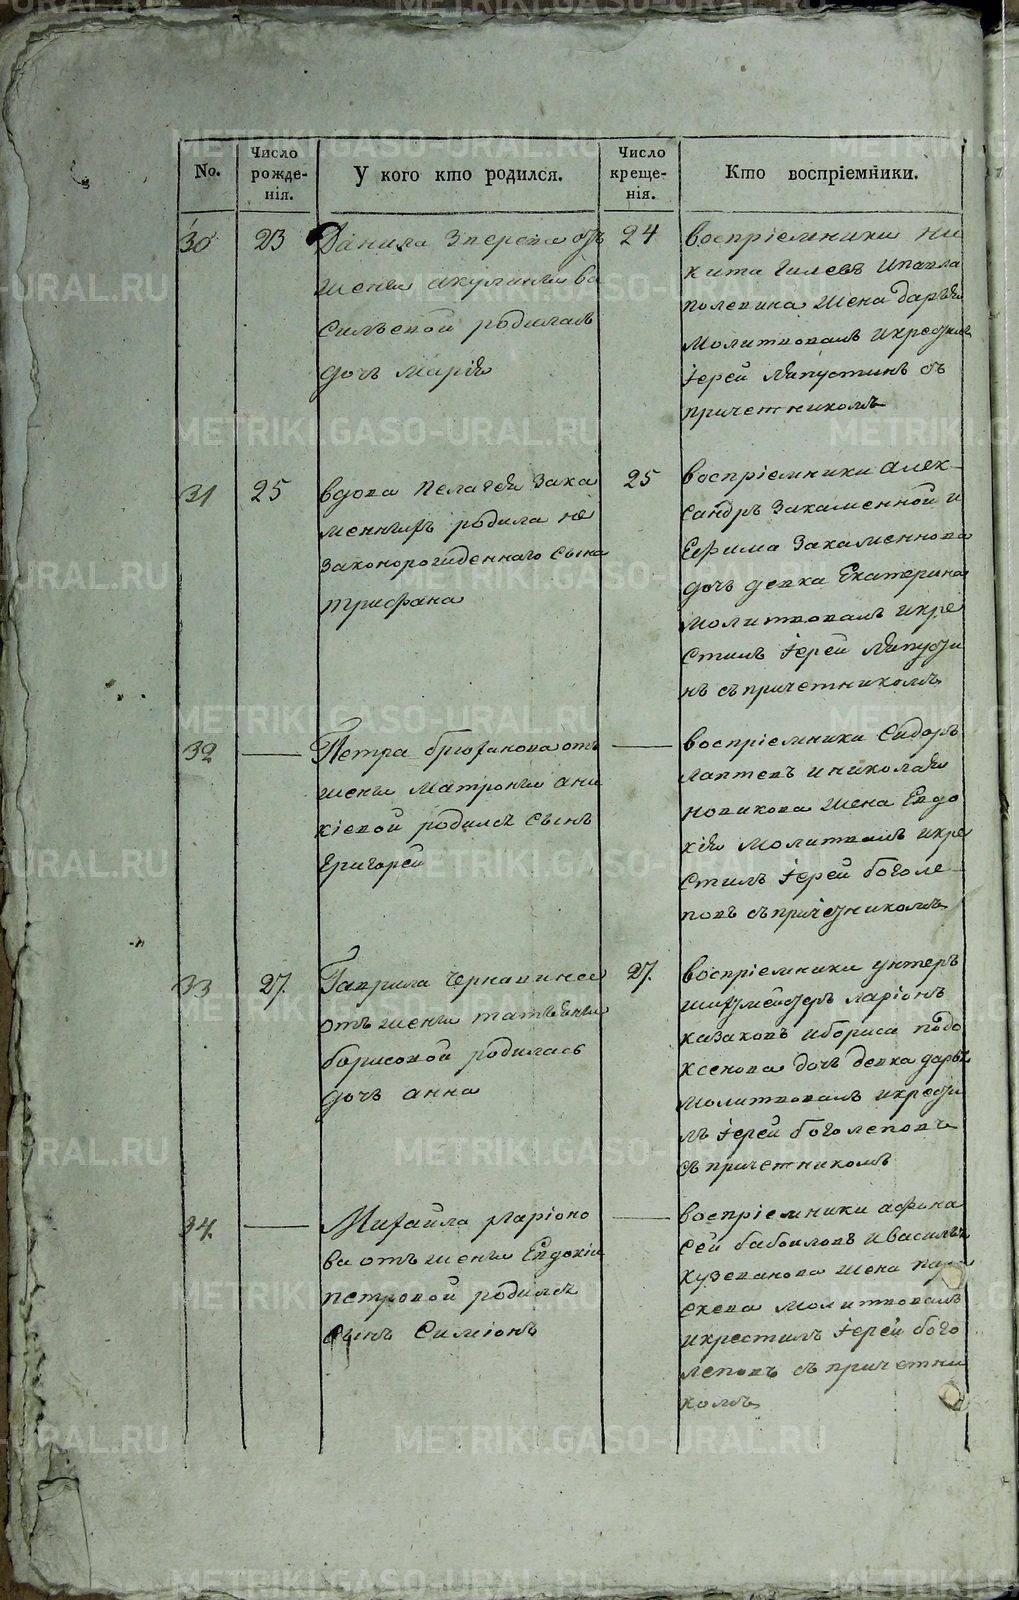 No.
Число рожде-
нія.
У кого кто родился.
Число креще-
нія.
Кто воспріемники.
30
23
Данила Зверева отъ
жены акулины ва
сильевой родилась
дочь Марія
24
воспріемники Ни
кита Гилевъ ипавла
полевина жена дарья
молитвовалъ икрестилъ
іерей Ляпустинъ съ
причетникомъ
31
25
вдова Пелагея Зака
менныхъ родила не
законорожденнаго сына
трифана
25
воспріемники Алек-
сандръ Закаменной и
Ефима Закаменнова
дочь девка Екатерина
молитвовалъ икре
стилъ іерей Ляпусти
нъ съпричетникомъ
32
Петра брюханова отъ
жены Матроны ани
кіевой родился сынъ
Григорей
воспріемники Сидоръ
лаптевъ иниколая
новикова жена Евдо
кія молитвовалъ икре
стилъ іерей боголе-
повъ съпричетникомъ
33
27.
Гаврила Чернавина
отъ жены татьяны
борисовой родилась
дочь анна
27.
воспріемники унтеръ
шихмейстеръ ларіонъ
казаковъ ибориса подо
ксенова дочь девка дарья
молитвовалъ икрести
лъ іерей боголеповъ
съ причетникомъ
34.
Михайла Ларіоно
ва отъ жены Евдокіи
петровой родился
сынъ Симіонъ
воспріемники афона
сей бабоиловъ ивасилья
кузеванова жена пара
скева молитвовалъ
икрестилъ іерей бого
леповъ съ причетни
комъ
METRIKI.GASO-URAL.RU